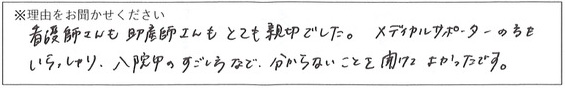 ※理由をお聞かせください
看護師さんも助産師さんもとても親切でした。メディカルサポーターの方も
いらっしゃり、入院中のすごし方など、分からないことを聞けてよかったです。